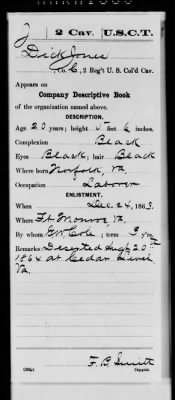 J 2 Cav. U.S.C.T.
Dick Jones
, Co. C, 2 Reg't U. S. Col'd Cav.
Appears on
Company Descriptive Book
of the organization named above.
DESCRIPTION.
Age 20 years; height 5 feet 6 inches.
Complexion Black
Eyes Black; hair Black
Where born Norfolk, Va.
Occupation Laborer
ENLISTMENT.
When Dec. 24, 1863.
Where Ft Monroe Va.
By whom E. W. Cole; term 3 y'rs.
Remarks: Deserted Aug 20th
1864 at Cedar Level
Va.
F. B. Smith
Copyist.